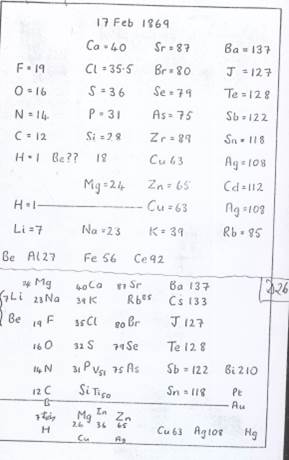 17 Feb 1869
Ca=40 Sr=87 Ba=137
F=19 Cl=35.5 Br=80 J=127
O=16 S=36 Se=79 Te=128
N=14 P=31 As=75 Sb=122
C=12 Si=28 Zr=89 Sn=118
H=1 Be?? 18 Cu 63 Ag=108
Mg=24 Zn=65 Cd=112
H=1 Cu=63 Ag=108
Li=7 Na=23 K=39 Rb=85
Be Al27 Fe 56 Ce92
24 Mg 40Ca 87Sr Ba 137
7Li 23Na 39K Rb85 Cs 133
Be 19 F 35Cl 80Br J 127
16O 32S 79Se Te 128
14N 31P V51 75As Sb=122 Bi210
12C Si Ti50 Sn=118 Pt
B Au
Mg In Zn
H 26 36 65 Cu63 Ag108 Hg
Cu Ag